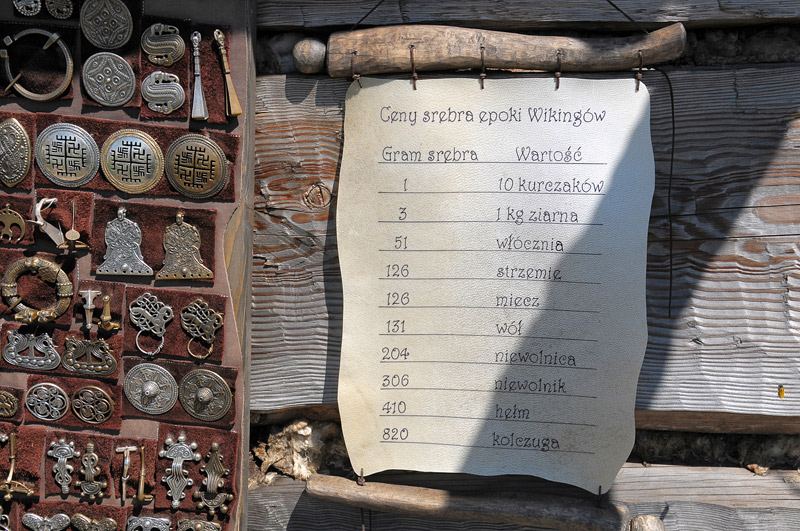 Ceny srebra epoki Wikingów
Gram srebra Wartość
1 10 kurczaków
3 1 kg ziarna
51 włócznia
126 strzemię
126 miecz
131 wół
204 niewolnica
306 niewolnik
410 hełm
820 kolczuga